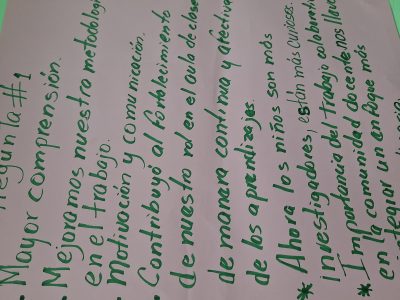 Pregunta #1
- Mayor comprensión.
- Mejoramos nuestra metodología
en el trabajo.
- Motivación y comunicación.
- Contribuyó al fortalecimiento
de nuestro rol en el aula de clase
de manera continua y afectiva
de los aprendizajes.
* Ahora los niños son más
investigadores, están más curiosos.
* Importancia del trabajo colaborativo
en la comunidad docente nos lleva
un enfoque más